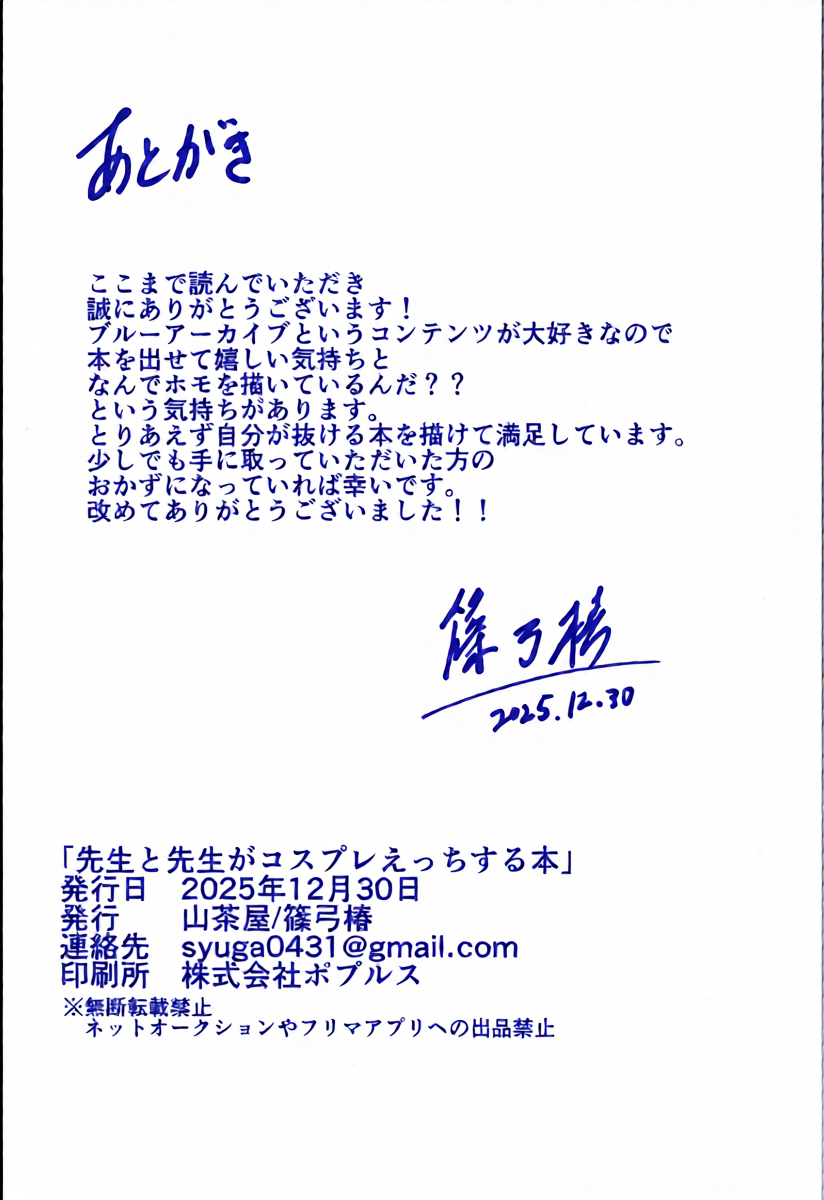 あとがき
ここまで読んでいただき
誠にありがとうございます！
ブルーアーカイブというコンテンツが大好きなので
本を出せて嬉しい気持ちと
なんでホモを描いているんだ？？
という気持ちがあります。
とりあえず自分が抜ける本を描けて満足しています。
少しでも手に取っていただいた方の
おかずになっていれば幸いです。
改めてありがとうございました！！
篠弓椿
2025.12.30
「先生と先生がコスプレえっちする本」
発行日　2025年12月30日
発行　　山茶屋/篠弓椿
連絡先　syuga0431@gmail.com
印刷所　株式会社ポプルス
※無断転載禁止
ネットオークションやフリマアプリへの出品禁止